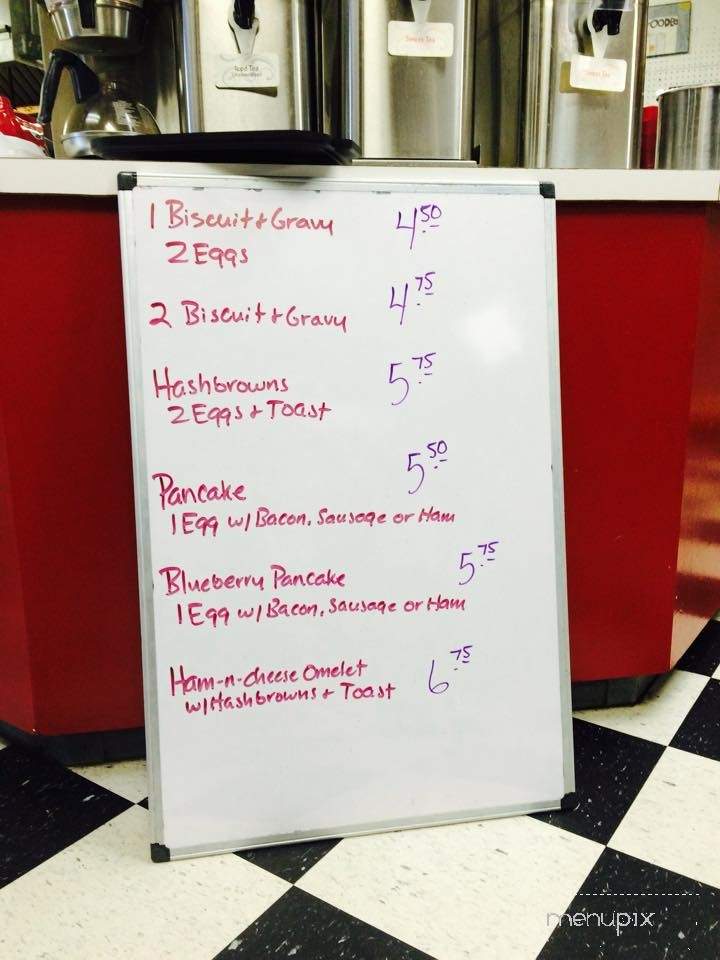 Iced Tea
Sweet Tea
Sweet Tea
1 Biscuit & Gravy 4.50
2 Eggs
2 Biscuit & Gravy 4.75
Hashbrowns 5.75
2 Eggs & Toast
Pancake 5.50
1 Egg w/ Bacon, Sausage or Ham
Blueberry Pancake 5.75
1 Egg w/ Bacon, Sausage or Ham
Ham-n-cheese Omelet 6.75
w/ Hashbrowns & Toast
menupix